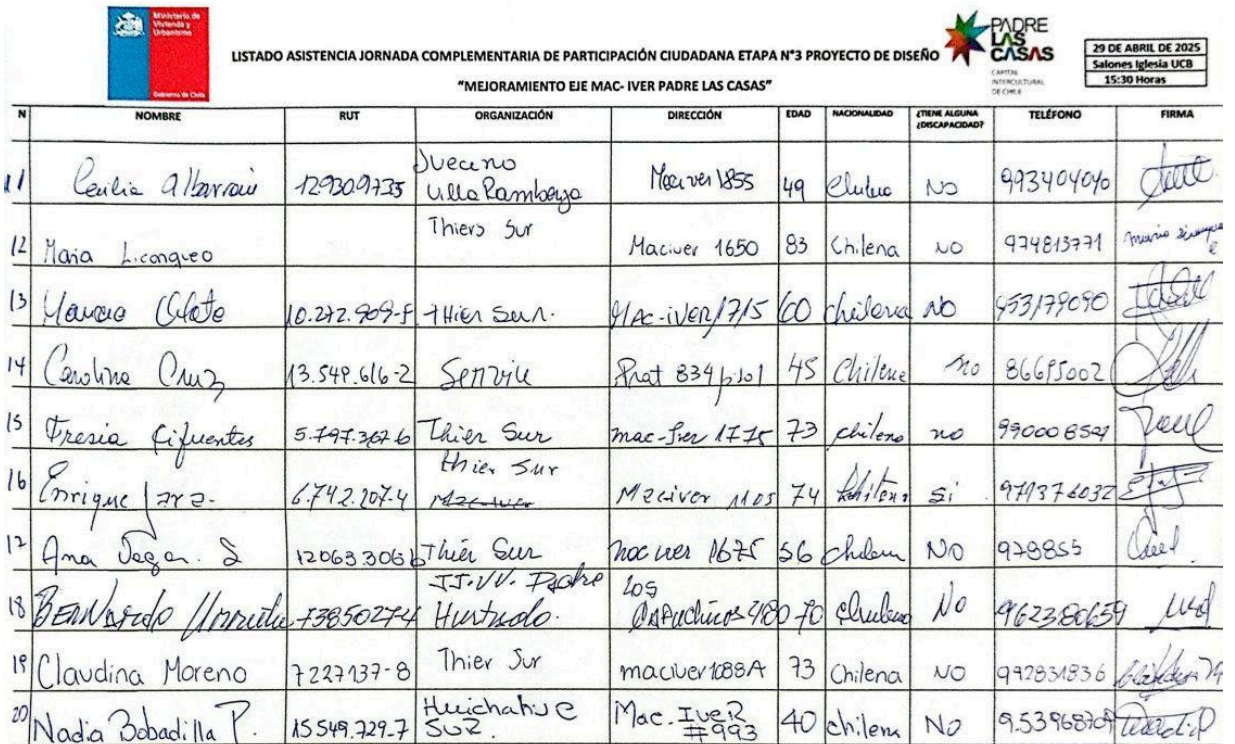 Ministerio de
Vivienda y
Urbanismo
Gobierno de Chile
LISTADO ASISTENCIA JORNADA COMPLEMENTARIA DE PARTICIPACIÓN CIUDADANA ETAPA N°3 PROYECTO DE DISEÑO
"MEJORAMIENTO EJE MAC- IVER PADRE LAS CASAS"
PADRE
LAS
CASAS
CAPITAL
INTERCULTURAL
DE CHILE
29 DE ABRIL DE 2025
Salones Iglesia UCB
15:30 Horas
N NOMBRE RUT ORGANIZACIÓN DIRECCIÓN EDAD NACIONALIDAD ¿TIENE ALGUNA ¿DISCAPACIDAD? TELÉFONO FIRMA
11 Cecilia Albarrain 12.930.973-5 Villa Maciver 1855 49 NO 993404040
12 Maria Licanqueo Thiers Sur Maciver 1650 83 Chilena NO 974813771
13 10.272.909- THier Sur. MAC-iVer 1715 60 chilena NO 953179090
14 Carolina Cruz 13.549.616-2 Serviu Prat 834 piso 1 45 Chilena no 86695002
15 Fresia Cifuentes 5.797.367-6 Thier Sur mac-Iver 1775 73 chilena no 990008521
16 Enrique Jara. 6.742.207-4 thier Sur Maciver 1105 74 Chileno Si 971376032
17 Ana Vega. S 12063306 Thier Sur 1675 56 chilena NO 978855
18 BERNARDO 7385027-4 JJ.VV. Padre Hurtado. Los Capuchinos 480 70 Chileno No 962380659
19 Claudina Moreno 7227137-8 Thier Sur maciver 1088A 73 Chilena NO 992831836
20 Nadia Bobadilla P. 15549.729-7 Huichahue SUR. Mac. IveR #993 40 chilena No 953968709